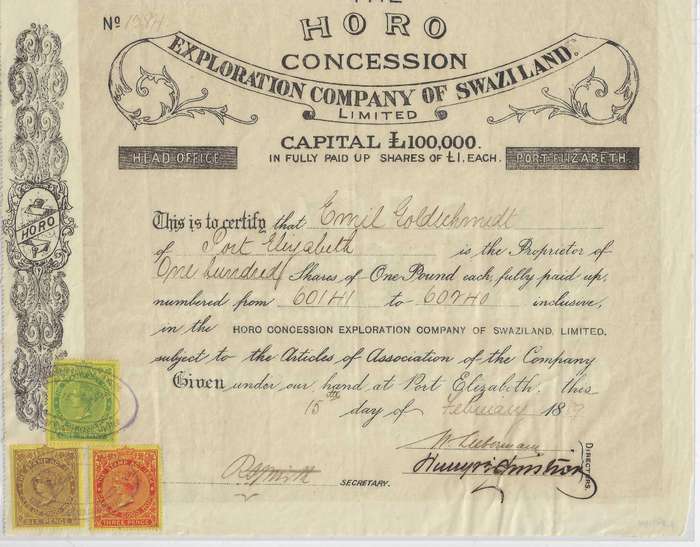 THE
Nº 1384
HORO
CONCESSION
EXPLORATION COMPANY OF SWAZILAND.
LIMITED
CAPITAL £100,000.
HEAD OFFICE
IN FULLY PAID UP SHARES OF £1, EACH.
PORT ELIZABETH.
HORO
This is to certify that Emil Goldschmidt
of Port Elizabeth is the Proprietor of
One hundred Shares of One Pound each, fully paid up,
numbered from 60141 to 60240 inclusive,
in the HORO CONCESSION EXPLORATION COMPANY OF SWAZILAND, LIMITED,
subject to the Articles of Association of the Company
Given under our hand at Port Elizabeth this
15th day of February 1889
W. Lieberman
DIRECTORS.
SECRETARY.
SIX PENCE
THREE PENCE